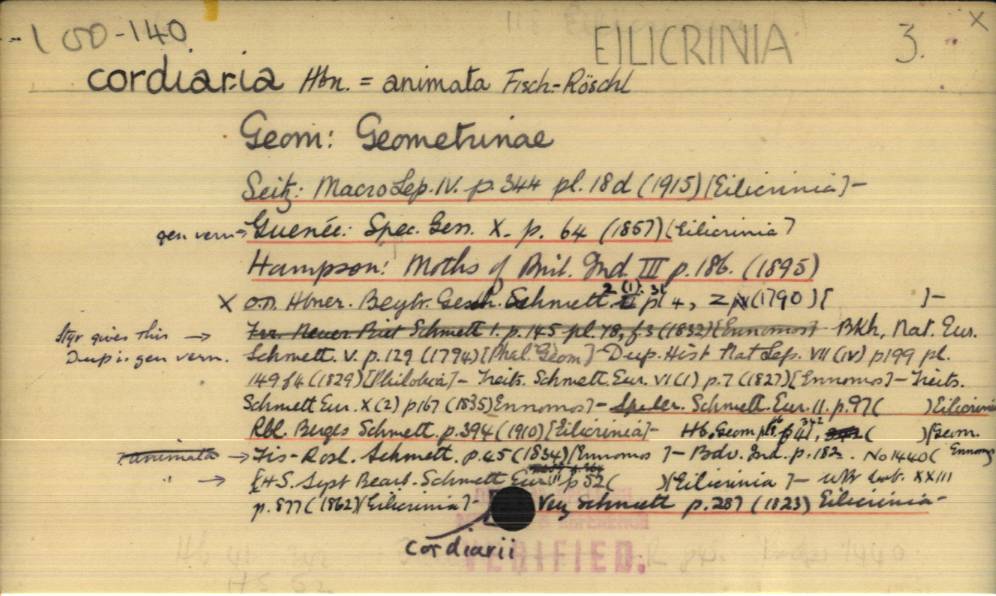 100-140 EILICRINIA 3. X
cordiaria Hbn. = animata Fisch-Röschl
Geom: Geometrinae
Seitz: Macro Lep. IV. p. 344 pl. 18d (1915) [Eilicrinia] -
gen vern → Guenée: Spec. Gen. X. p. 64 (1857) [Eilicrinia]
Hampson: Moths of Brit. Ind. III p. 186. (1895)
X o.n. Hbner. Beytr. Gesch. Schmett. 2 (1). 31 pl 4, Z (1790) [ ] -
Styr gives this → Frr. Neuer Beit Schmett 1. p. 145 pl. 78, f3 (1832) [Ennomos] Bkh, Nat. Eur.
Dup is gen vern. Schmett. V. p. 129 (1794) [Phal Geom] - Dup. Hist Nat Lep. VII (IV) p199 pl.
149 f4 (1829) [Philobia] - Treits. Schmett Eur. VI (1) p. 7 (1827) [Ennomos] - Treits.
Schmett Eur. X (2) p167 (1835) Ennomos] - Speler. Schmett. Eur. 11. p. 97 ( ) Eilicrinia
Rbl. Berges Schmett. p. 394 (1910) [Eilicrinia] - Hb. Geom 342 ( ) [Geom.
animata → Fis-Rosl. Schmett. p. 45 (1834) [Ennomos] - Bdv. Ind. p. 182. No 1440 ( Ennomos
" → [H-S. Syst Bearb. Schmett Eur. p 52 ( ) [Eilicrinia] - XXIII
p. 877 (1862) [Eilicrinia] - Schmett p. 287 (1823) Eilicrinia -
cordiarii
VERIFIED.